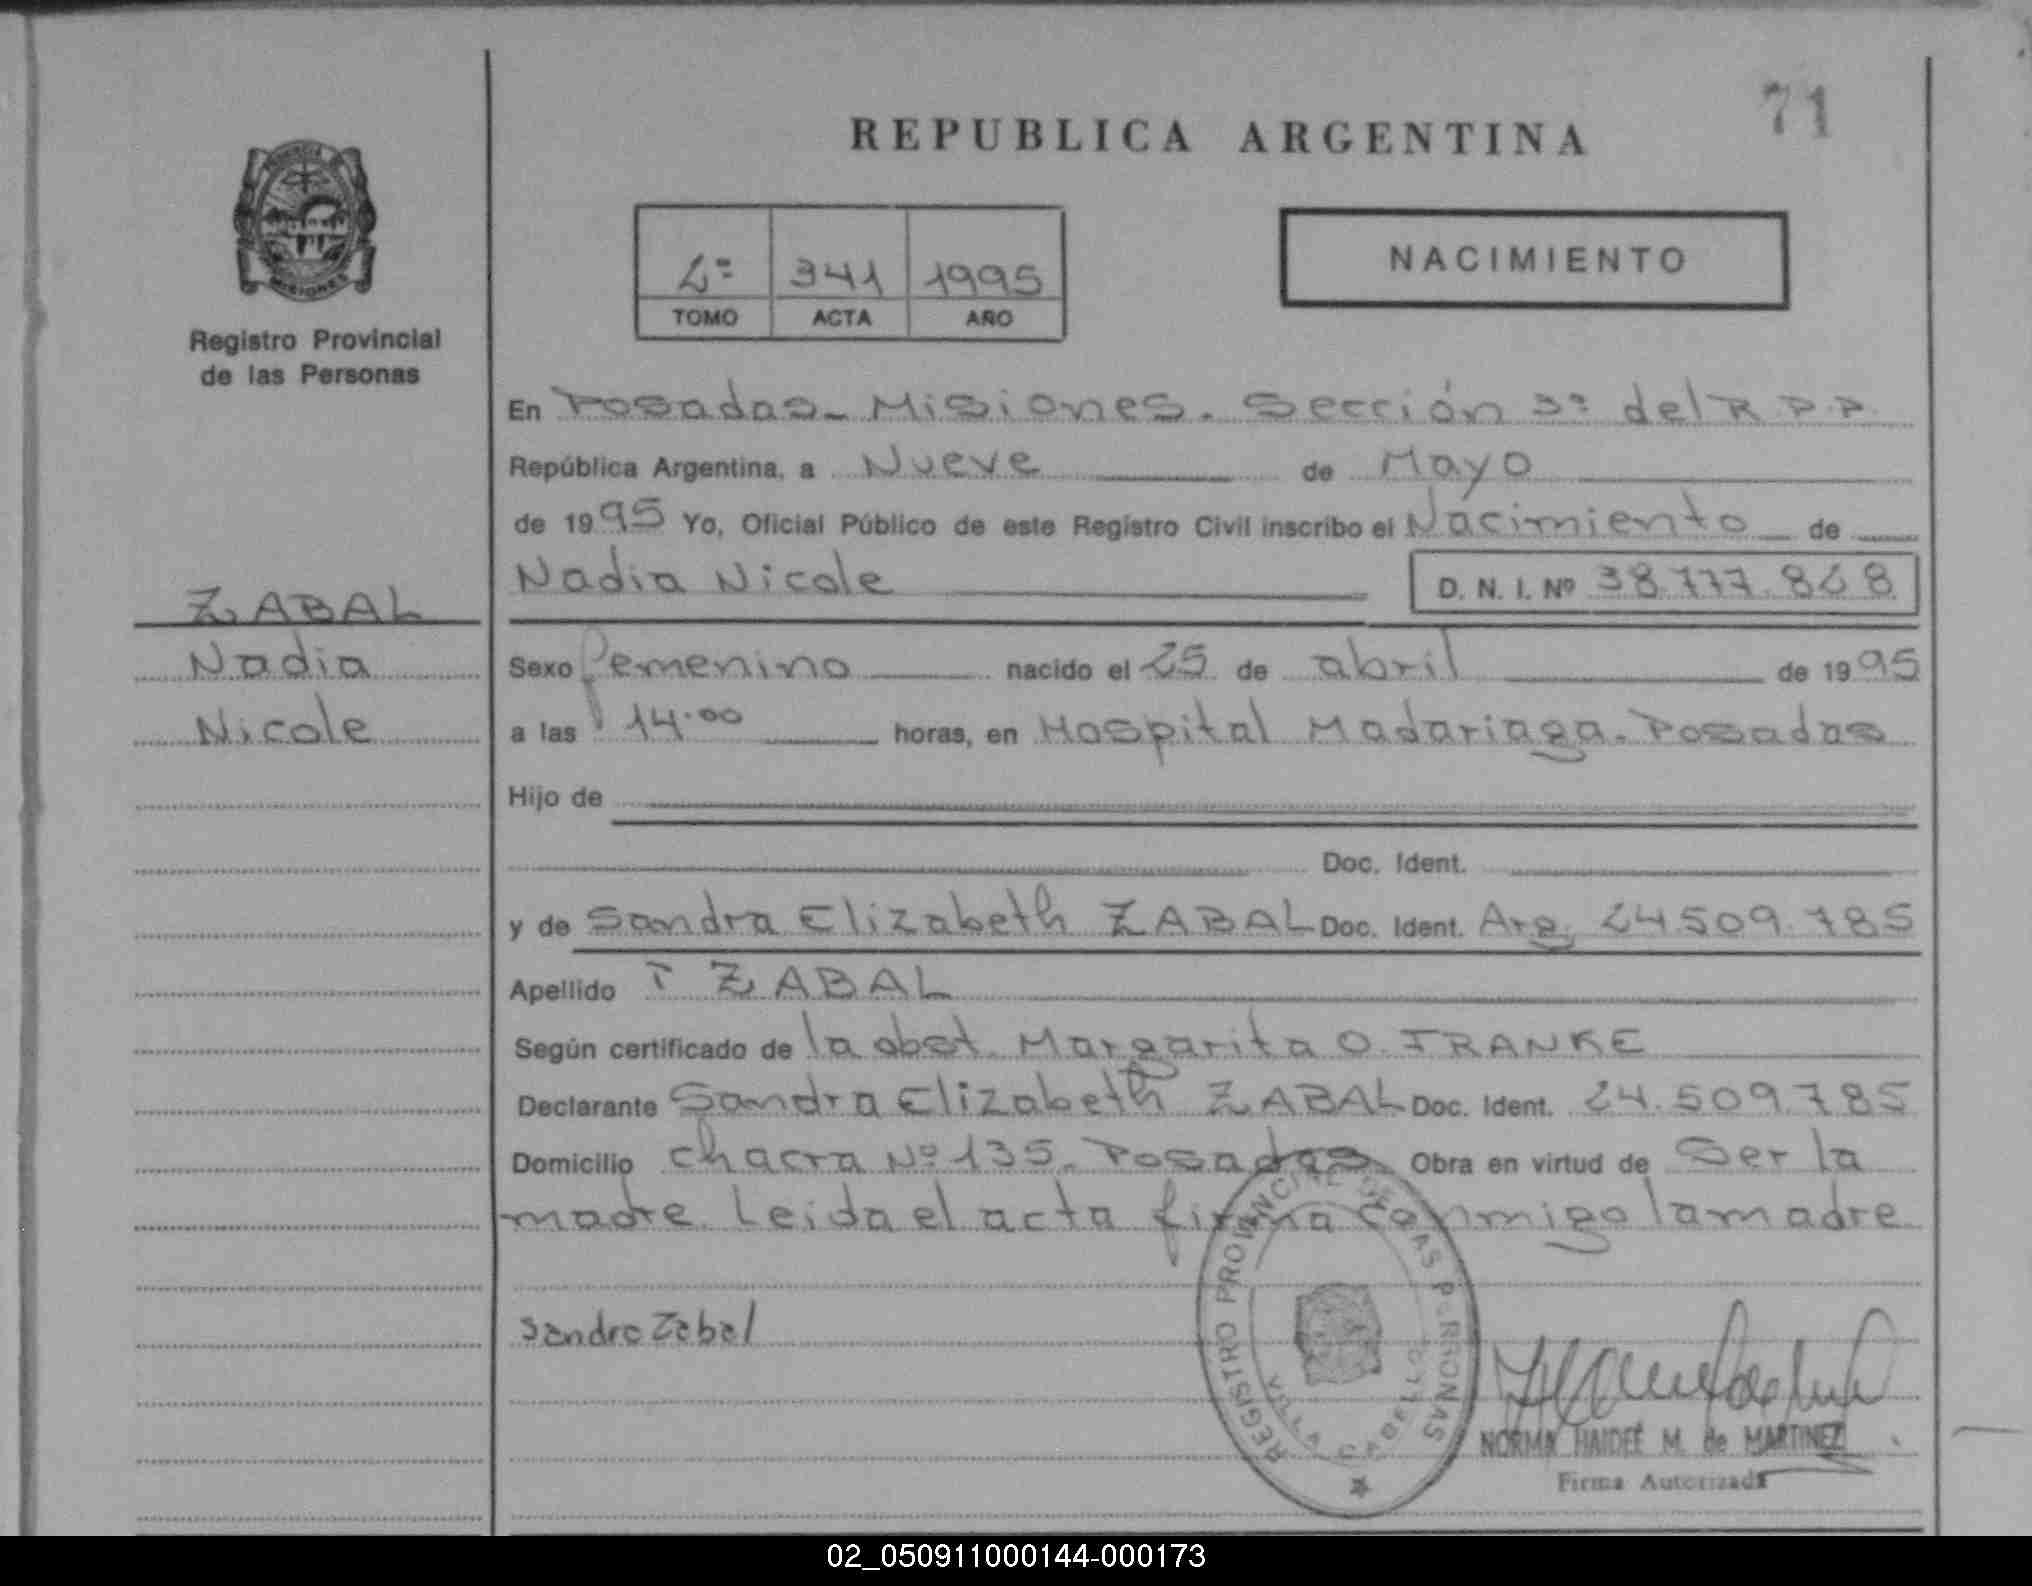 71
REPUBLICA ARGENTINA
PROVINCIA DE
MISIONES
Registro Provincial
de las Personas
NACIMIENTO
2º 341 1995
TOMO ACTA AÑO
En Posadas - Misiones. Sección 3º del R.P.P.
República Argentina, a Nueve de Mayo
de 1995 Yo, Oficial Público de este Registro Civil inscribo el Nacimiento de
Nadia Nicole D. N. I. Nº 38.777.868
ZABAL
Nadia
Nicole
Sexo femenino nacido el 25 de abril de 1995
a las 14.00 horas, en Hospital Madariaga. Posadas
Hijo de
Doc. Ident.
y de Sandra Elizabeth ZABAL Doc. Ident. Arg. 24.509.785
Apellido ZABAL
Según certificado de la obst. Margarita O. FRANKE
Declarante Sandra Elizabeth ZABAL Doc. Ident. 24.509.785
Domicilio chacra Nº 135. Posadas. Obra en virtud de Ser la
madre. Leida el acta firma conmigo la madre
Sandra Zabal
REGISTRO PROVINCIAL DE LAS PERSONAS
VILLA CABELLO
NORMA HAIDEÉ M. de MARTINEZ
Firma Autorizada
02_050911000144-000173